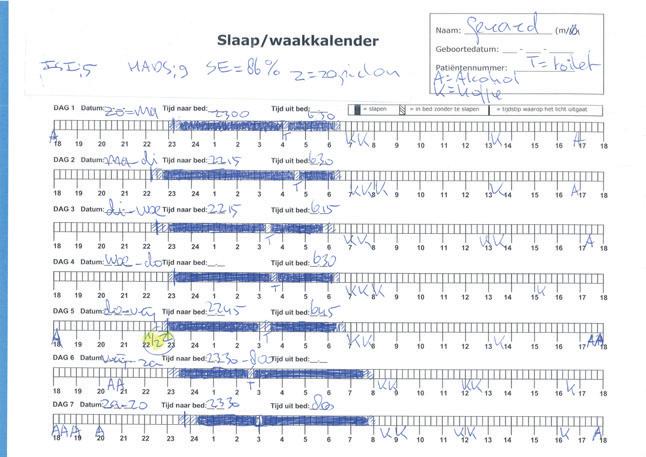 Slaap/waakkalender
Naam: Gerard (m/v)
Geboortedatum: __-__-____
Patiëntennummer: T=toilet
A=Alcohol
K=Koffie
ISI;5 HADS;9 SE=86% Z=zopiclon
DAG 1 Datum: zo-ma Tijd naar bed: 2300 Tijd uit bed: 630 = slapen = in bed zonder te slapen = tijdstip waarop het licht uitgaat
A T K K K A
18 19 20 21 22 23 24 1 2 3 4 5 6 7 8 9 10 11 12 13 14 15 16 17 18
DAG 2 Datum: ma-di Tijd naar bed: 2215 Tijd uit bed: 630
T K K K K A
18 19 20 21 22 23 24 1 2 3 4 5 6 7 8 9 10 11 12 13 14 15 16 17 18
DAG 3 Datum: di-woe Tijd naar bed: 2215 Tijd uit bed: 615
T K K K K A
18 19 20 21 22 23 24 1 2 3 4 5 6 7 8 9 10 11 12 13 14 15 16 17 18
DAG 4 Datum: woe-do Tijd naar bed: __.__ Tijd uit bed: 630
T K K K
18 19 20 21 22 23 24 1 2 3 4 5 6 7 8 9 10 11 12 13 14 15 16 17 18
DAG 5 Datum: do-vrij Tijd naar bed: 2245 Tijd uit bed: 645
A 1/2 Z T K K K K A A
18 19 20 21 22 23 24 1 2 3 4 5 6 7 8 9 10 11 12 13 14 15 16 17 18
DAG 6 Datum: vrij-za Tijd naar bed: 2330-800 Tijd uit bed: __.__
A A T K K K K K
18 19 20 21 22 23 24 1 2 3 4 5 6 7 8 9 10 11 12 13 14 15 16 17 18
DAG 7 Datum: za-zo Tijd naar bed: 2330 Tijd uit bed: 800
A A A A T K K K K K A
18 19 20 21 22 23 24 1 2 3 4 5 6 7 8 9 10 11 12 13 14 15 16 17 18